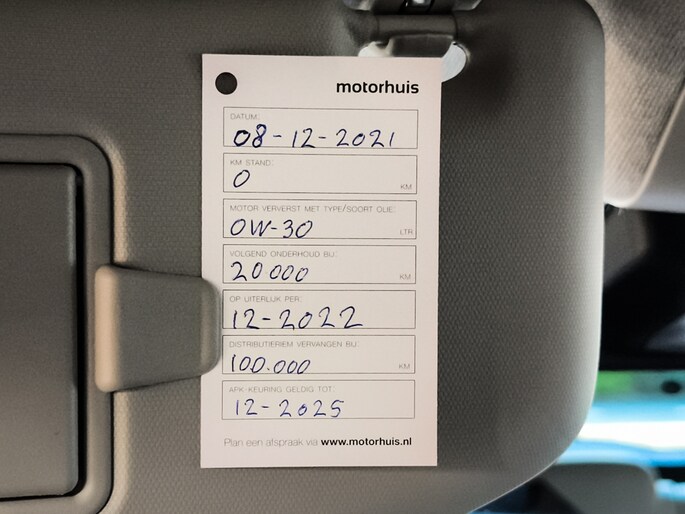 motorhuis
DATUM:
08-12-2021
KM STAND:
0
KM
MOTOR VERVERST MET TYPE/SOORT OLIE:
0W-30
LTR
VOLGEND ONDERHOUD BIJ:
20000
KM
OP UITERLIJK PER:
12-2022
DISTRIBUTIERIEM VERVANGEN BIJ:
100.000
KM
APK-KEURING GELDIG TOT:
12-2025
Plan een afspraak via www.motorhuis.nl